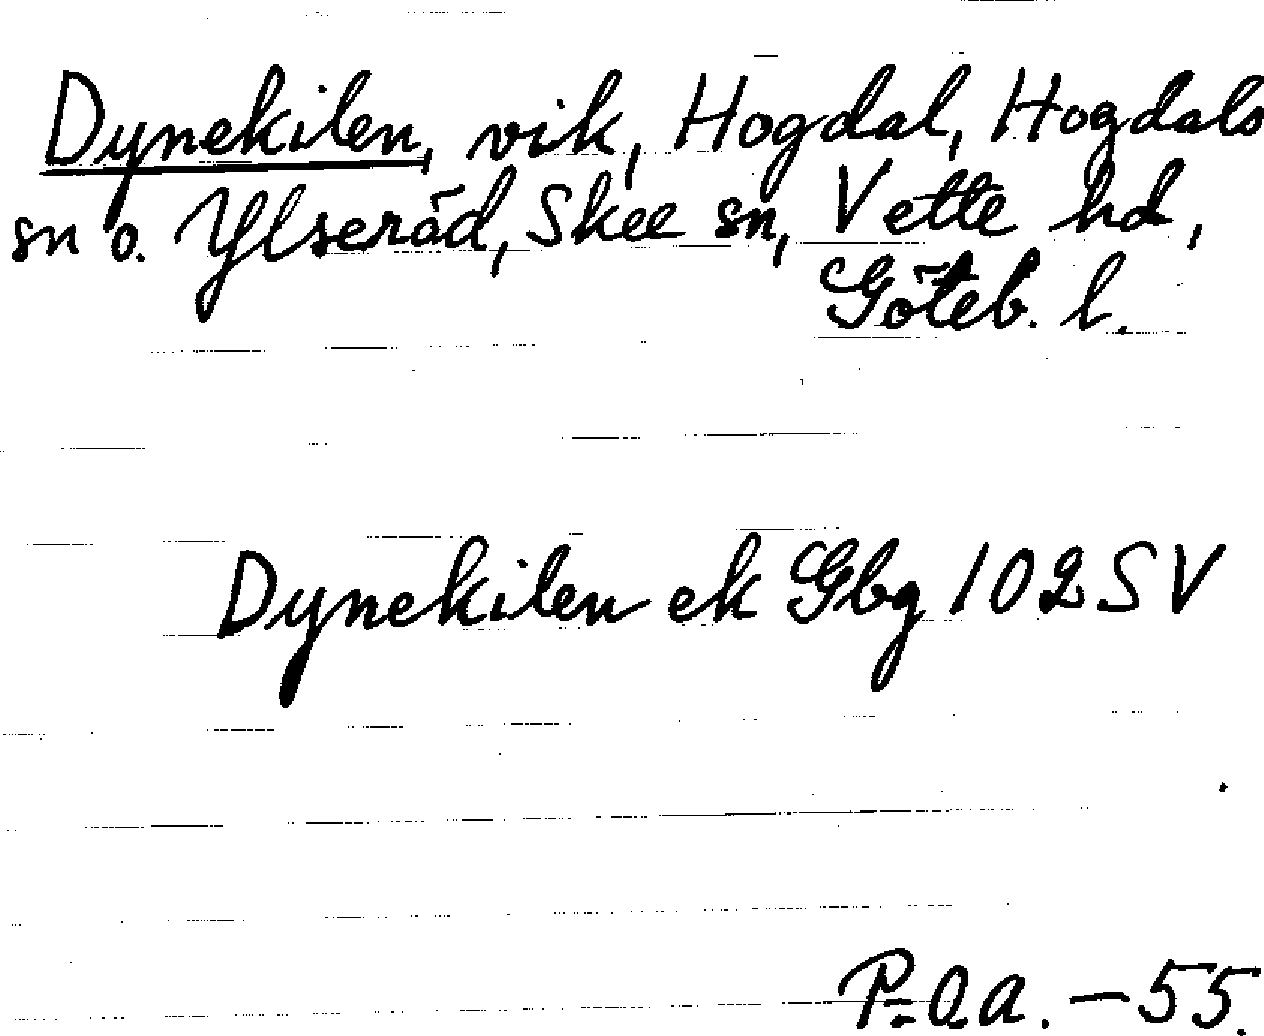 Dynekilen, vik, Hogdal, Hogdals
sn o. Ylseröd, Skee sn, Vette hd,
Göteb. l.
Dynekilen ek Gbg 102 SV
P=Q.a. -55.